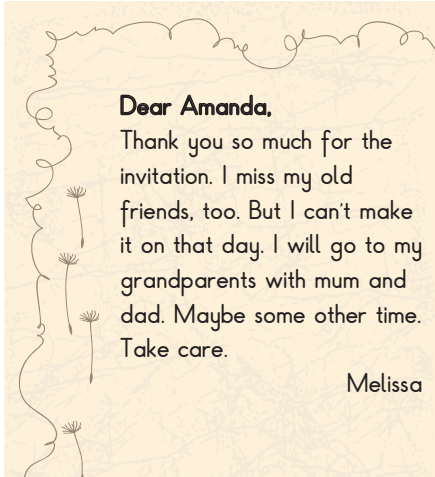 Dear Amanda,
Thank you so much for the
invitation. I miss my old
friends, too. But I can't make
it on that day. I will go to my
grandparents with mum and
dad. Maybe some other time.
Take care.
Melissa